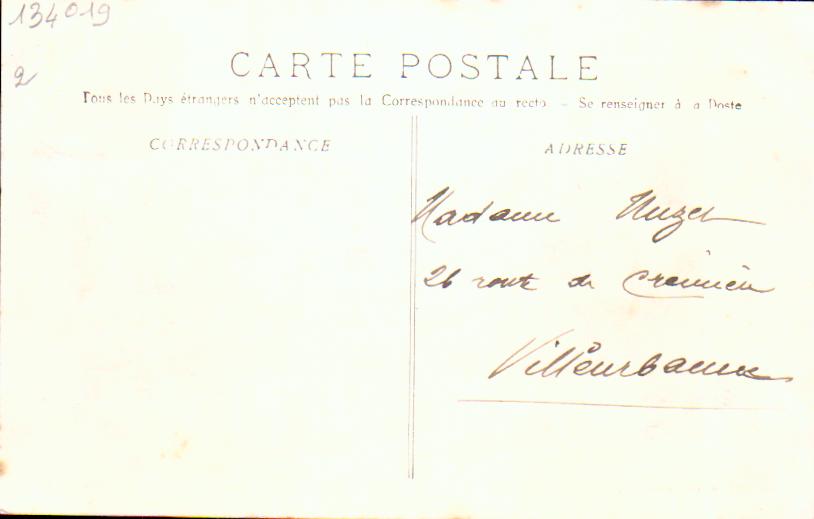 134019
2
CARTE POSTALE
Tous les Pays étrangers n'acceptent pas la Correspondance au recto. - Se renseigner à la Poste
CORRESPONDANCE
ADRESSE
Madame
26 route de Crémieu
Villeurbanne